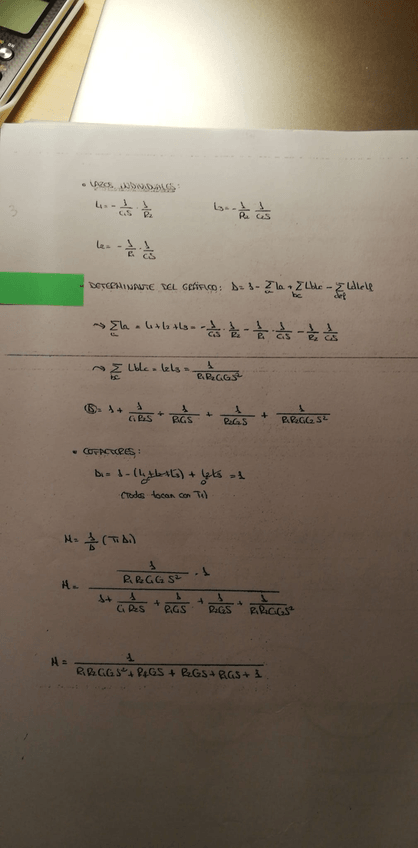 • LAZOS INDIVIDUALES:
L1 = - 1/C1S · 1/R2    L3 = - 1/R2 · 1/C2S
L2 = - 1/R1 · 1/C1S
- DETERMINANTE DEL GRÁFICO: Δ = 1 - Σa La + Σbc LbLc - Σdef LdLeLf
↝ Σa La = L1 + L2 + L3 = - 1/C1S · 1/R2 - 1/R1 · 1/C1S - 1/R2 · 1/C2S
↝ Σbc LbLc = L2L3 = 1/R1R2C1C2S²
Δ = 1 + 1/C1R2S + 1/R1C1S + 1/R2C2S + 1/R1R2C1C2S²
• COFACTORES:
Δ1 = 1 - (L1 + L2 + L3) + L2L3 = 1
0 0
(Todos tocan con T1)
H = 1/Δ (T1 Δ1)
H = 1/R1R2C1C2S² · 1
1 + 1/C1R2S + 1/R1C1S + 1/R2C2S + 1/R1R2C1C2S²
H = 1/